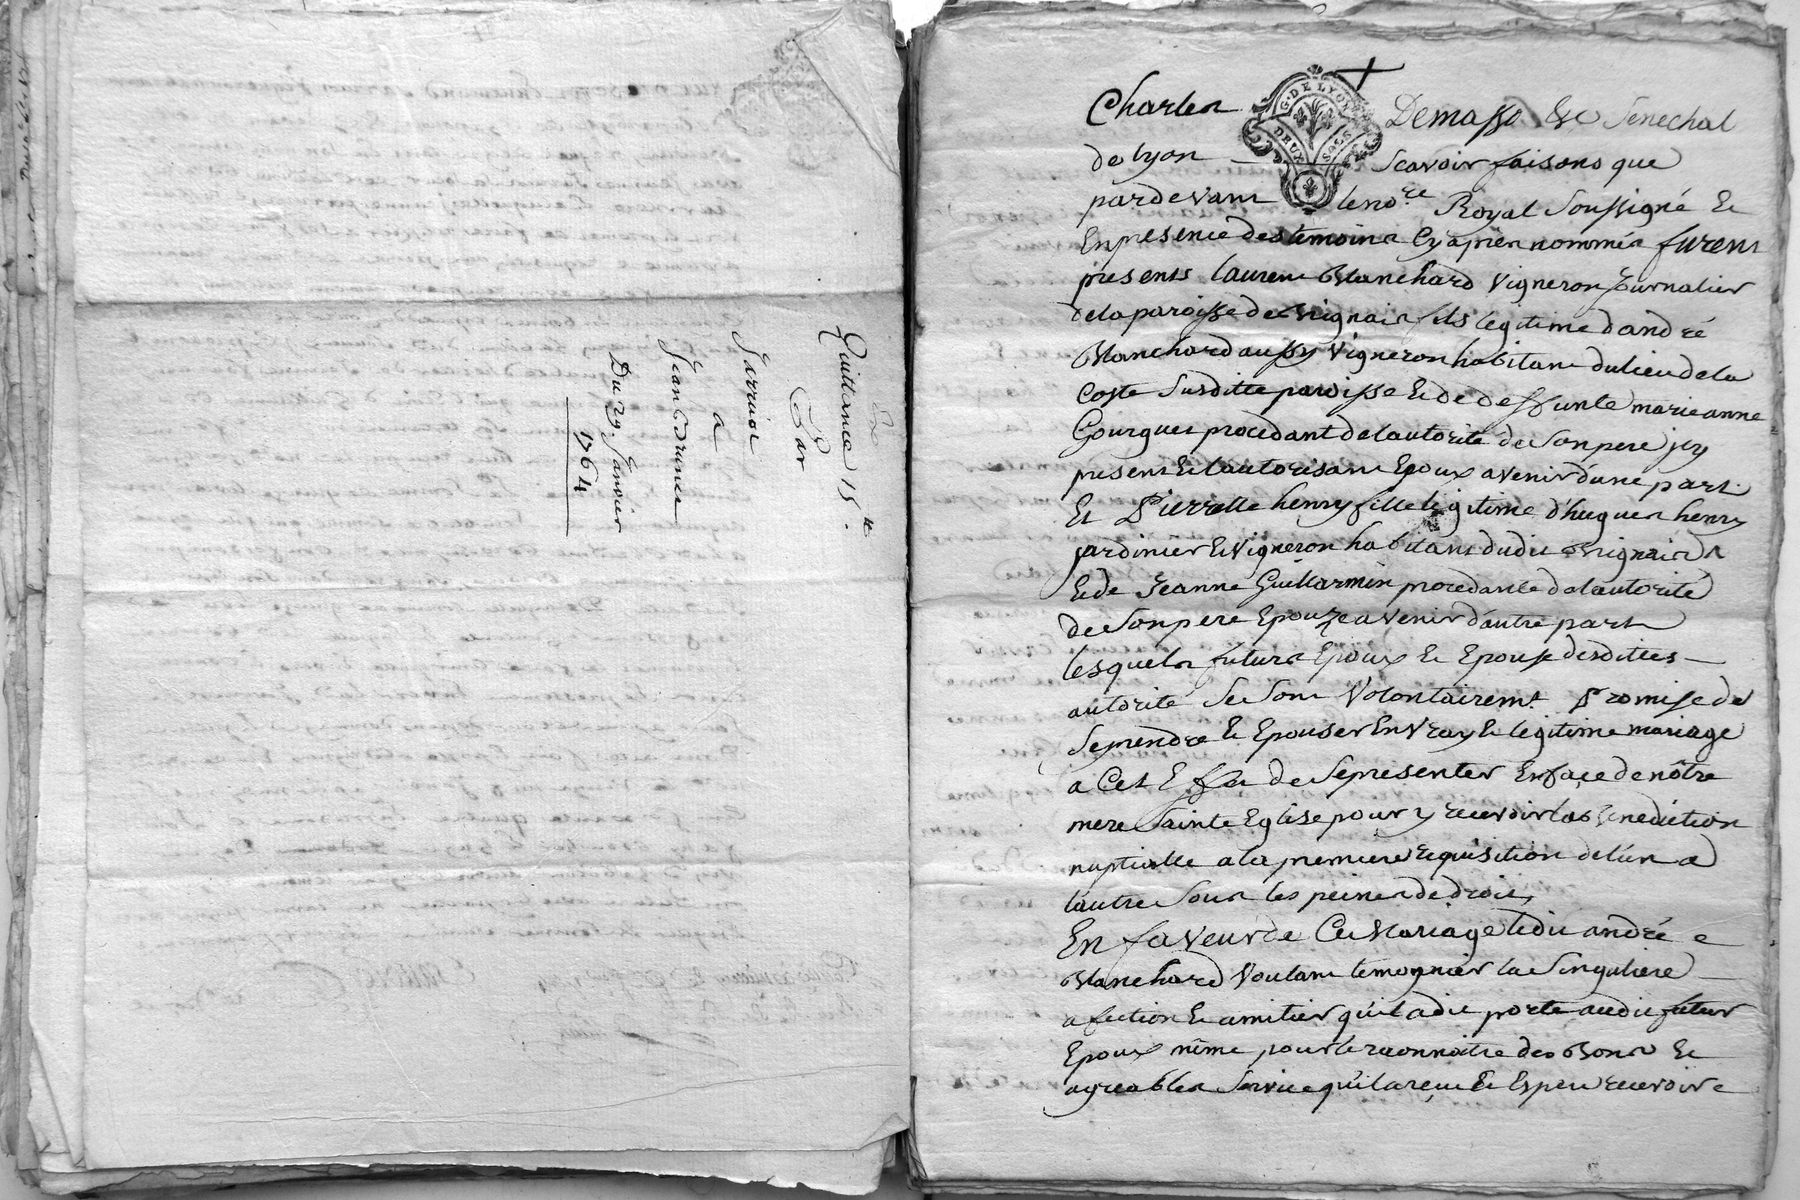 Quittance 15.tt
Par
Ferriol
a
Jean Brunea
Du 29 Janvier
1764
G. DE LYON
DEUX SOLS
Charles Demasso &c Senechal
de lyon — Scavoir faisons que
pardevant le no.re Royal Soussigné &
En presence des temoins Cy apres nommés furent
presents laurent Blanchard Vigneron journalier
de la paroisse de Brignais fils legitime d'andré
Blanchard aussy Vigneron habitant du lieu de la
Coste Susditte paroisse & de deffunte marieanne
Gourgues procedant de l'autorité de Son pere icy
present & l'autorisant Epoux a venir d'une part
Et Pierrette henry fille legitime d'hugues henry
jardinier & Vigneron habitant dudit Brignais
& de Jeanne Guillarmin procedante de l'autorité
de Son pere Epouze a venir d'autre part
lesquels futurs Epoux & Epouse desdittes —
autorité Se Sont Volontairem.t Promis de
Se prendre & Epouser En Vray & legitime mariage
a Cet Effet de Se presenter En façe de nôtre
mere Sainte Eglise pour y recevoir la Benediction
nuptialle a la premiere requisition de l'un a
l'autre Sous les peines de droit,
En faveur de Ce Mariage ledit andré
Blanchard Voulant temognier la Singuliere
afection & amitier qu'il a dit porte audit futur
Epoux même pour le reconnoitre des Bons &
agreables Service qu'il a reçu & Espere recevoir